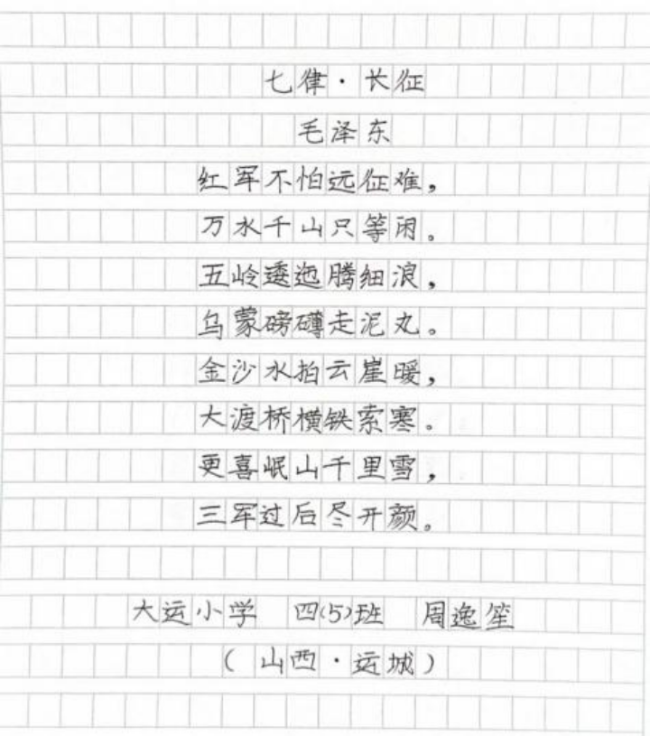 七律·长征
毛泽东
红军不怕远征难，
万水千山只等闲。
五岭逶迤腾细浪，
乌蒙磅礴走泥丸。
金沙水拍云崖暖，
大渡桥横铁索寒。
更喜岷山千里雪，
三军过后尽开颜。
大运小学 四(5)班 周逸笙
( 山西·运城 )